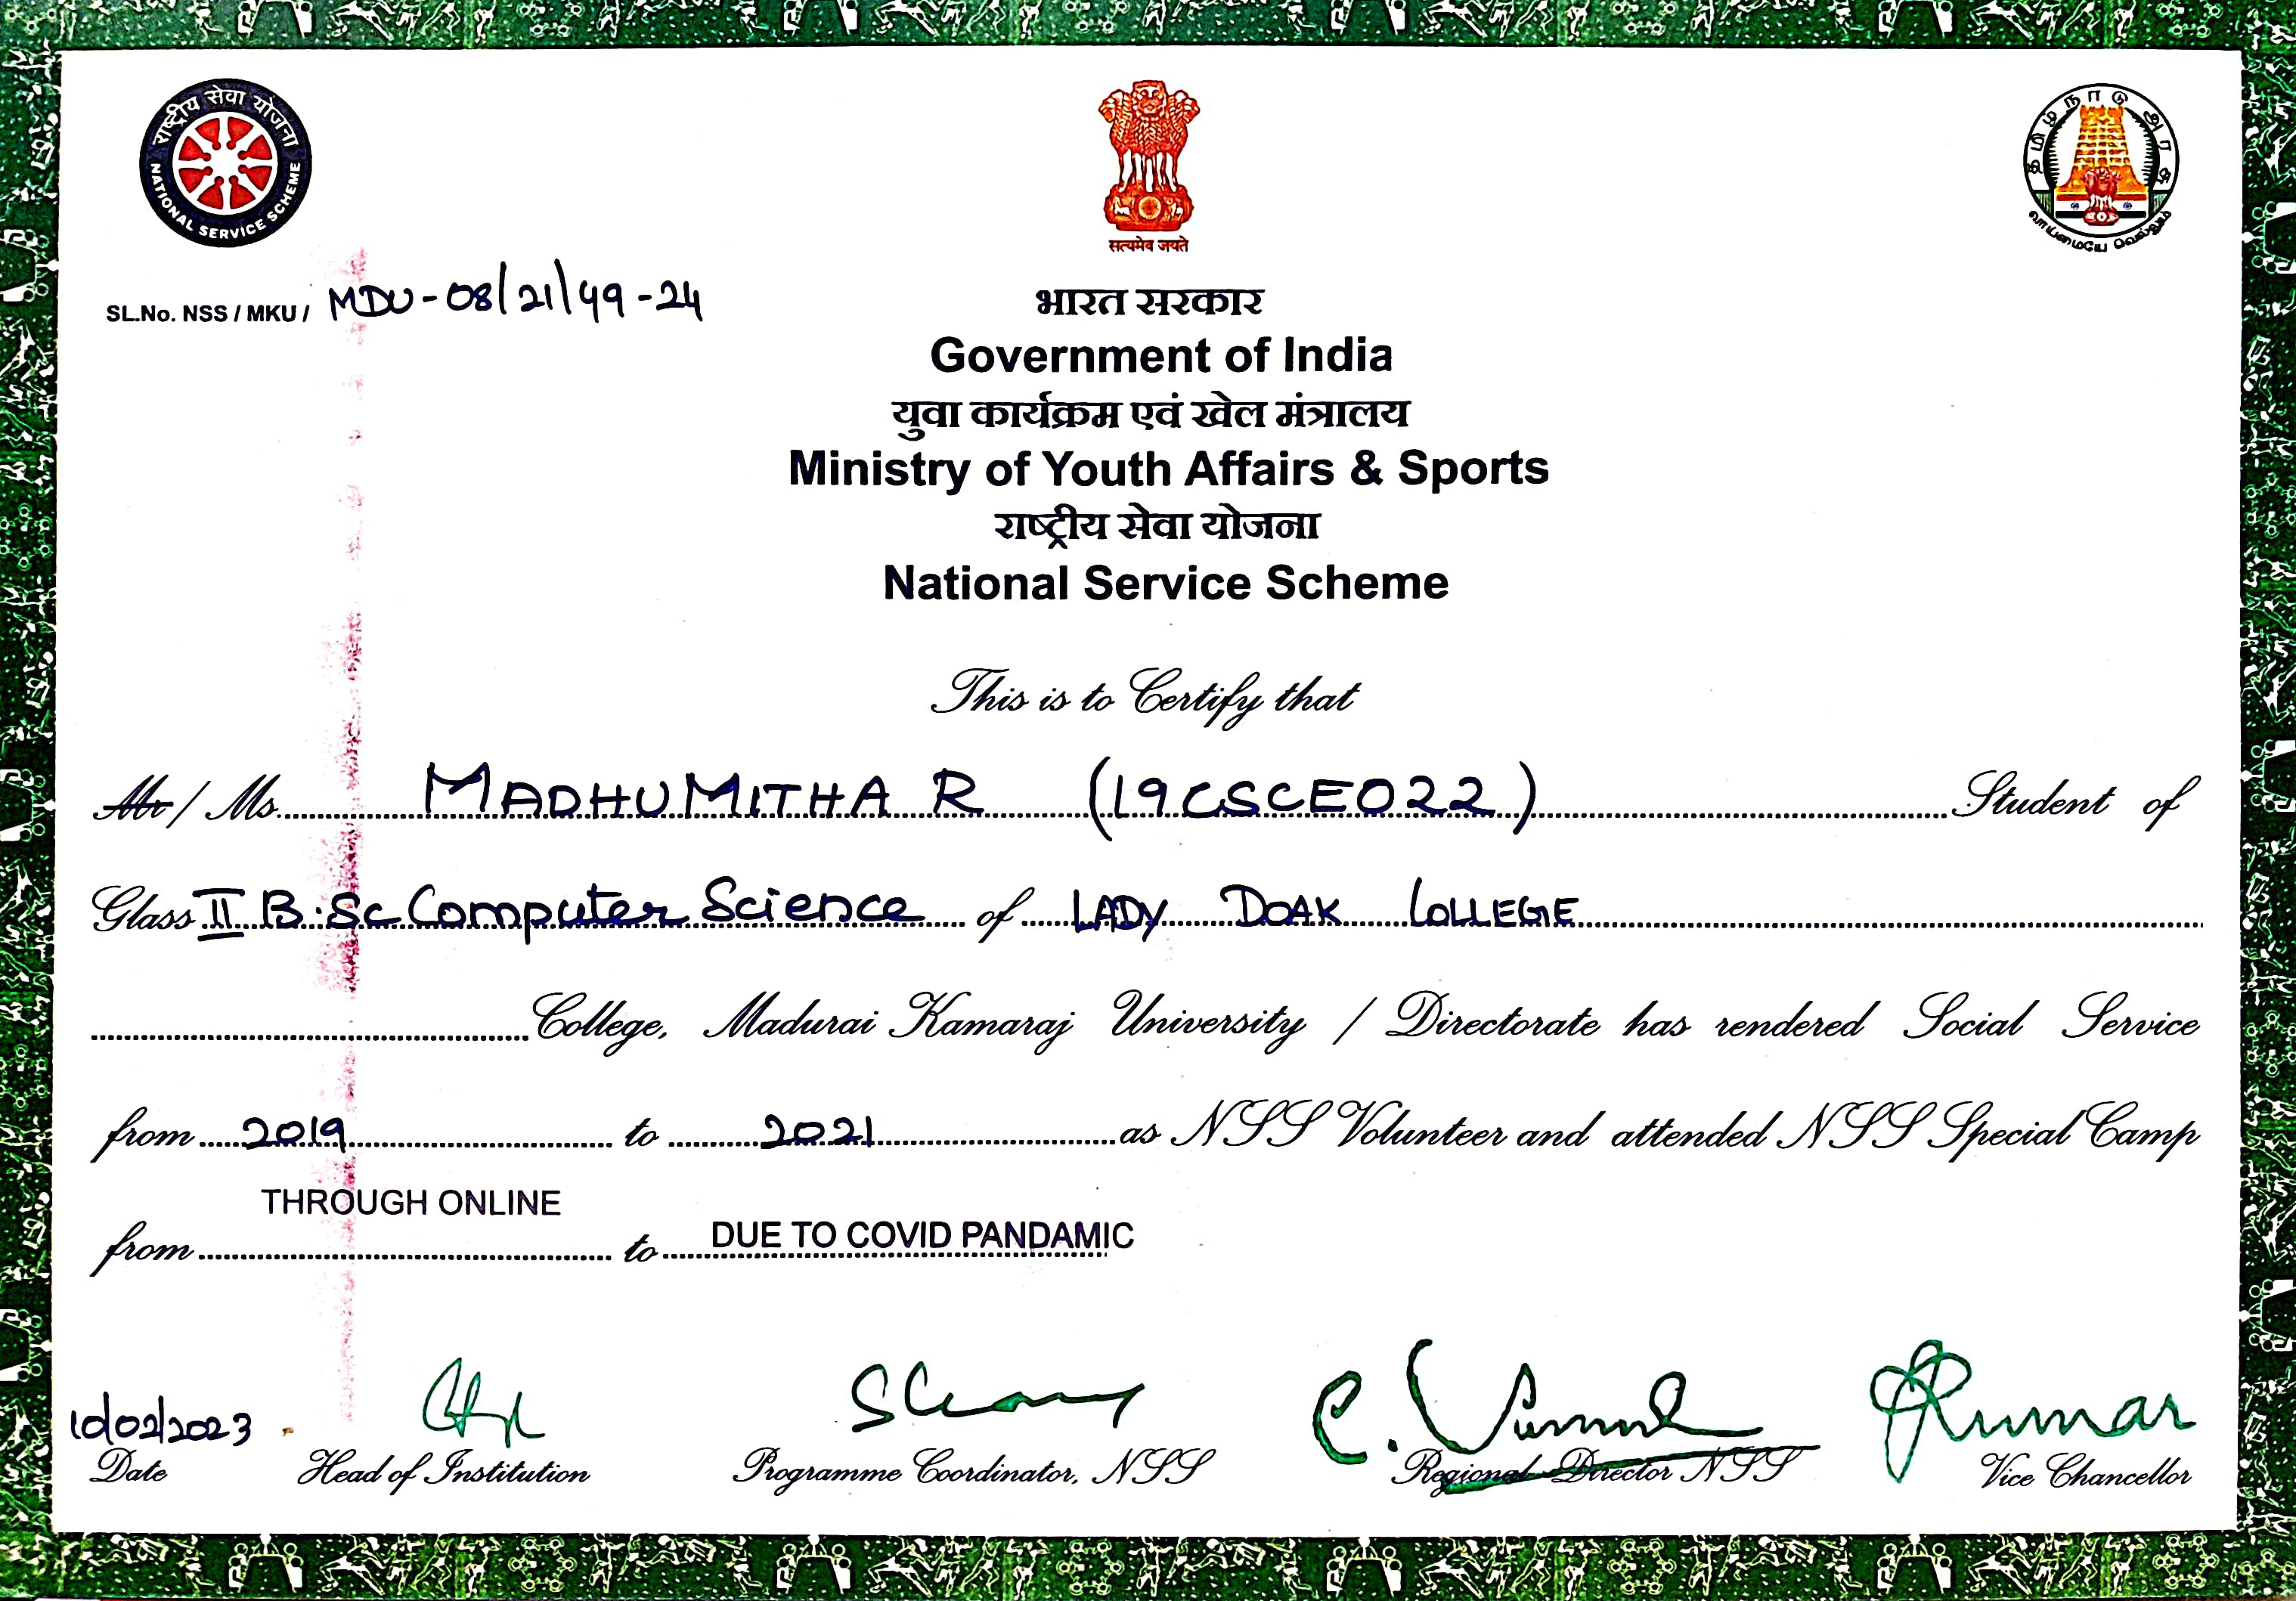 राष्ट्रीय सेवा योजना
NATIONAL SERVICE SCHEME
सत्यमेव जयते
தமிழ்நாடு அரசு
வாய்மையே வெல்லும்
SL.No. NSS / MKU / MDU-08/21/49-24
भारत सरकार
Government of India
युवा कार्यक्रम एवं खेल मंत्रालय
Ministry of Youth Affairs & Sports
राष्ट्रीय सेवा योजना
National Service Scheme
This is to Certify that
Mr / Ms. MADHUMITHA R (19CSCE022) Student of
Class II B.Sc Computer Science of LADY DOAK COLLEGE
College, Madurai Kamaraj University / Directorate has rendered Social Service
from 2019 to 2021 as NSS Volunteer and attended NSS Special Camp
from THROUGH ONLINE to DUE TO COVID PANDAMIC
10/02/2023
Date Head of Institution Programme Coordinator, NSS Regional Director NSS Vice Chancellor